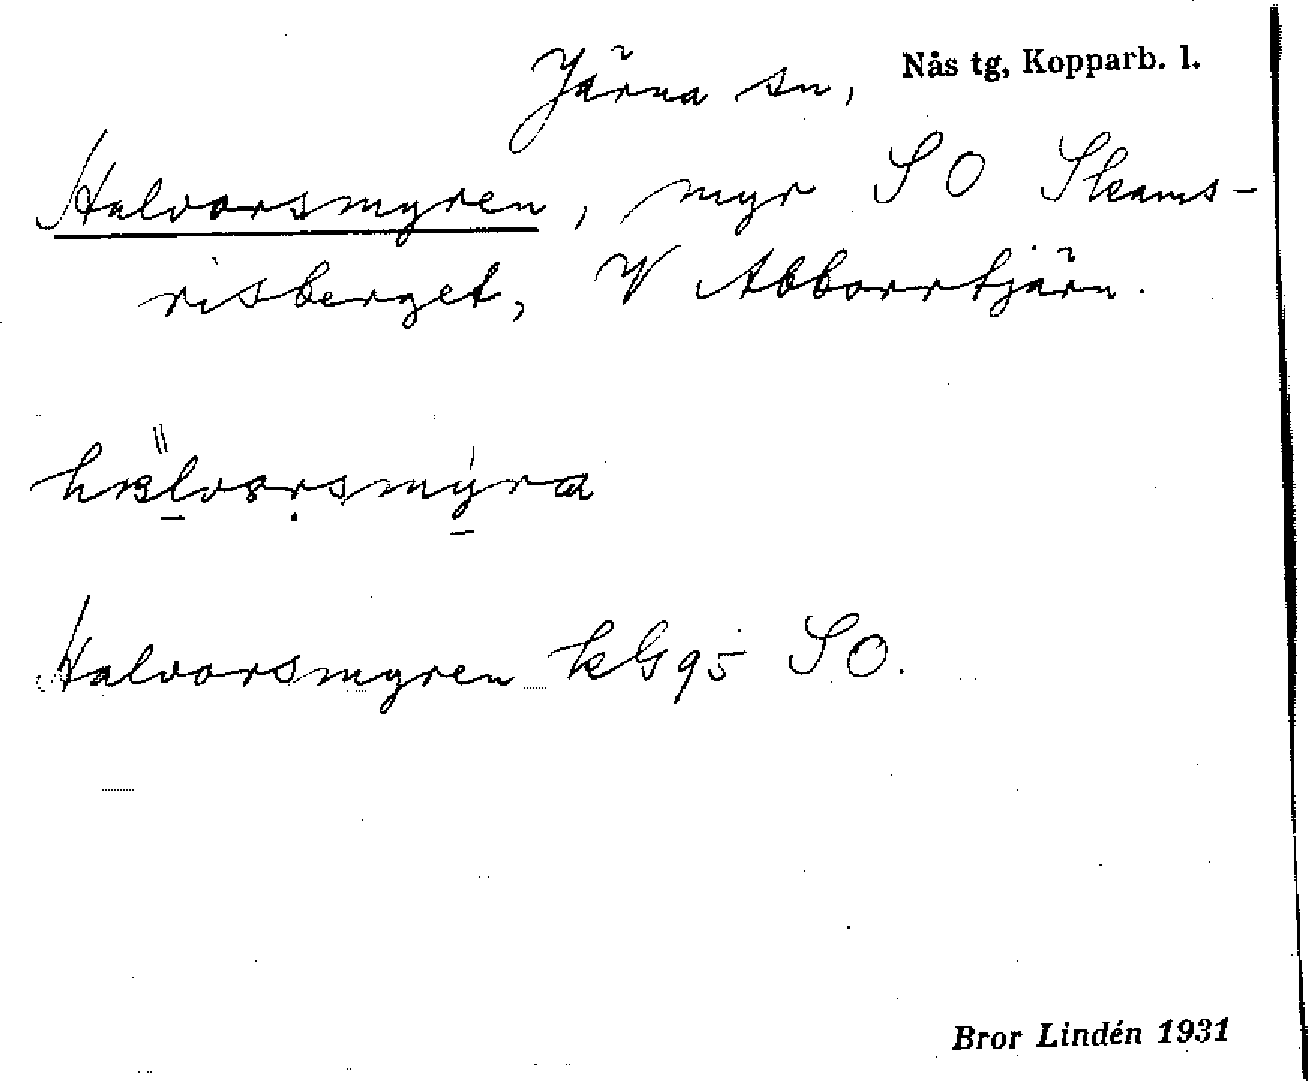 Järna sn, Nås tg, Kopparb. l.
Halvorsmyren, myr SO Skams-
risberget, V Abborrtjärn.
Halvorsmyren kG95 SO.
Bror Lindén 1931